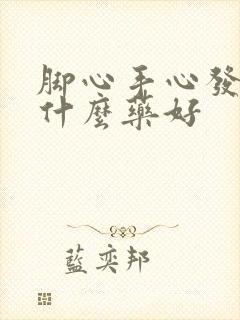 脚心手心發
什麼藥好
藍奕邦